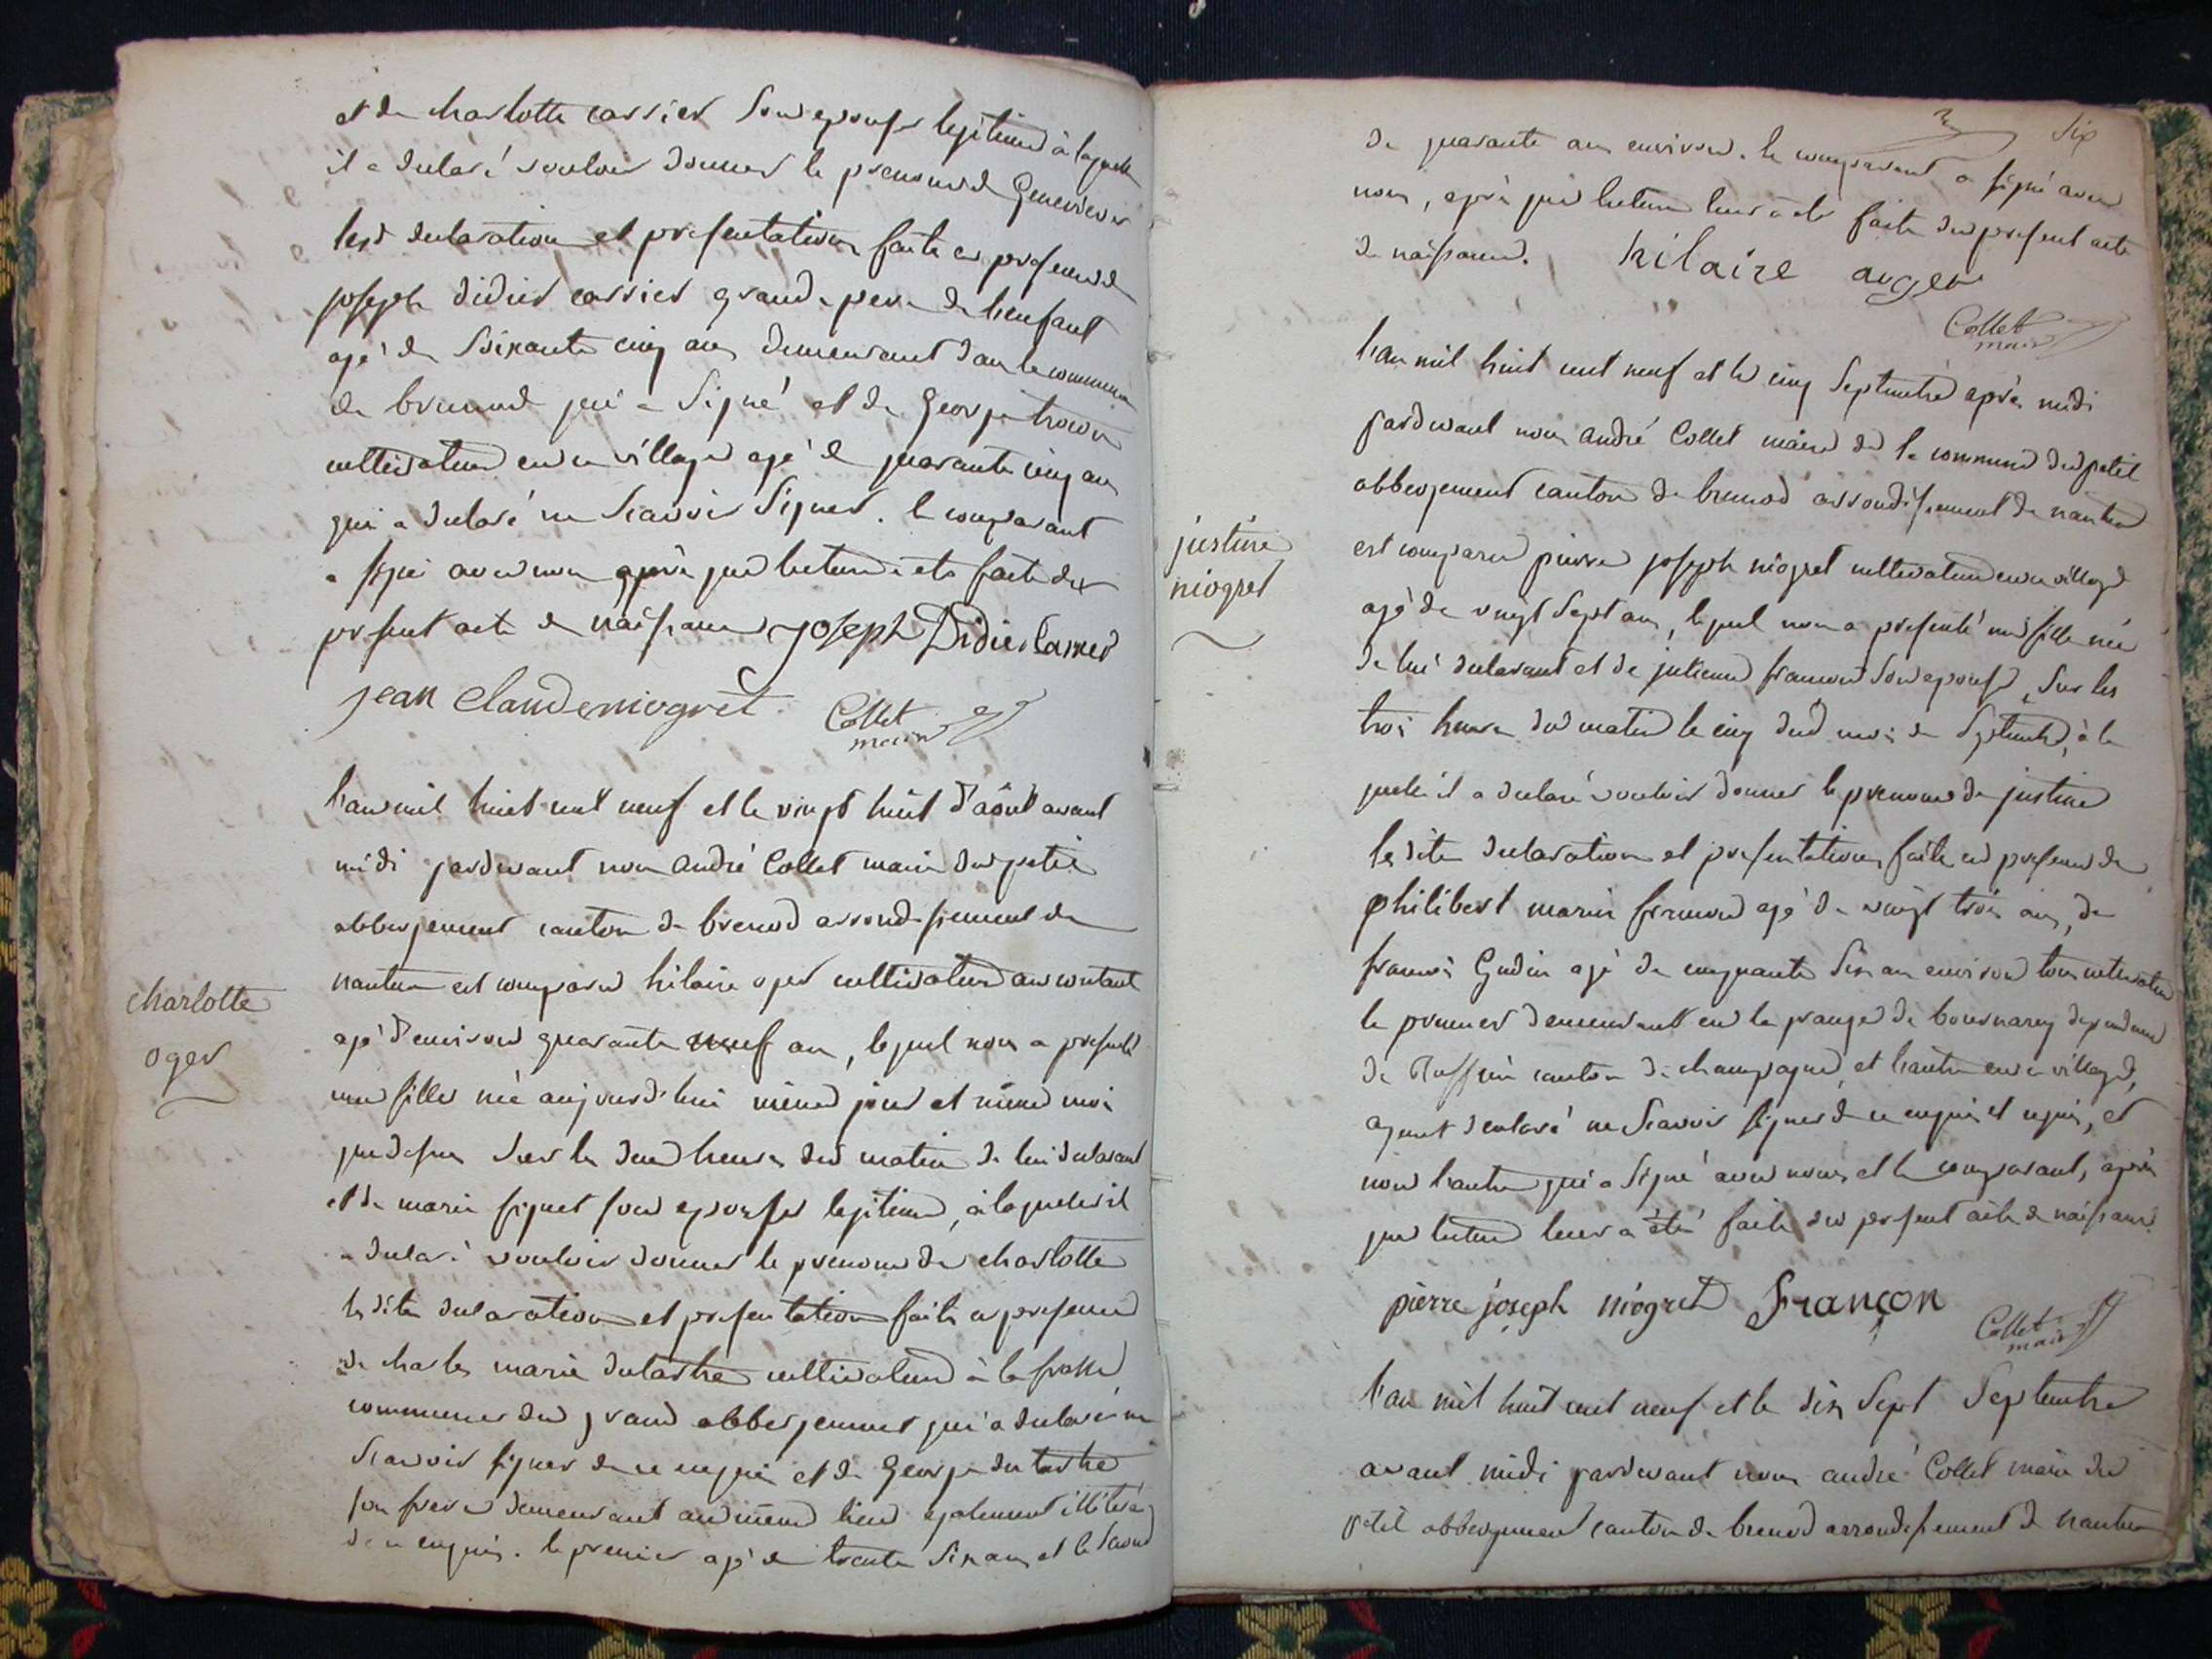 et de charlotte carrier son epouse legitime à laquelle
il a declaré vouloir donner le prenom de Genevieve
les d declaration et presentation faite en presence de
joseph didier carrier grand pere de lenfant
agé de Soixante cinq ans demeurant dans la commune
de brenod qui a Signé et de George
cultivateur en ce village agé de quarante cinq ans
qui a declaré ne Scavoir Signer. le comparant
a signé avec nous après que lecture a ete faite du
present acte de naissance joseph Didier Carrier
jean claude niogret Collet
maire
l'an mil huit cent neuf et le vingt huit d'aôut avant
midi pardevant nous andré Collet maire du petit
abbergement canton de brenod arrondissement de
nantua est comparu hilaire oger cultivateur au
charlotte
oger
agé d'environ quarante neuf ans, lequel nous a presenté
une fille née aujourd'hui même jour et même mois
que dessus Sur les deux heures du matin de lui declarant
et de marie son epouse legitime, à laquelle il
a declaré vouloir donner le prenom de charlotte
les dites declaration et presentation faite en presence
de charles marie cultivateur à la
commune du grand abbergement qui a declaré ne
Scavoir signer de ce enquis et de George
son frere demeurant au même lieu egalement illiteré
de ce enquis. le premier agé de trente Six ans et le Second
Six
de quarante ans environ. le comparant a signé avec
nous, après que lecture leur a ete faite du present acte
de naissance. hilaire auger
Collet
maire
l'an mil huit cent neuf et le cinq Septembre après midi
pardevant nous andré Collet maire de la commune du petit
abbergement canton de brenod arrondissement de nantua
justine
niogret
est comparu pierre joseph niogret cultivateur en ce village
agé de vingt Sept ans, lequel nous a presenté une fille née
de lui declarant et de julienne françon son epouse, Sur les
trois heures du matin le cinq dud mois de Septembre, à la
quelle il a declaré vouloir donner le prenom de justine
les dites declaration et presentation faite en presence de
philibert marie françon agé de vingt trois ans, de
françois Gudin agé de cinquante Six ans environ tous cultivateurs
le premier demeurant en la grange de
de Ruffieu canton de champagne, et l'autre en ce village,
ayant declaré ne Scavoir signer de ce enquis et requis, et
non l'autre qui a Signé avec nous et le comparant, après
que lecture leur a été faite du present acte de naissance.
pierre joseph niogret Françon
Collet
maire
l'an mil huit cent neuf et le dix Sept Septembre
avant midi pardevant nous andré Collet maire du
petit abbergement canton de brenod arrondissement de nantua